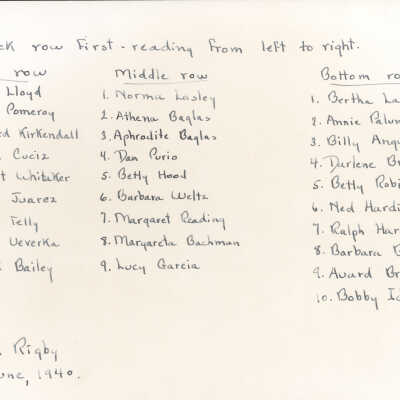 ck row first - reading from left to right.
row
Lloyd
Pomeroy
rd Kirkendall
Cueiz
t Whitaker
Juarez
Felly
Ueverka
Bailey
Middle row
1. Norma Lasley
2. Athena Baglas
3. Aphrodite Baglas
4. Dan Purio
5. Betty Hood
6. Barbara Weltz
7. Margaret Reading
8. Margareta Bachman
9. Lucy Garcia
Bottom ro
1. Bertha La
2. Annie Palum
3. Billy Angu
4. Darlene Br
5. Betty Robi
6. Ned Hardi
7. Ralph Har
8. Barbara B
9. Award Br
10. Bobby Id
Rigby
une, 1940.